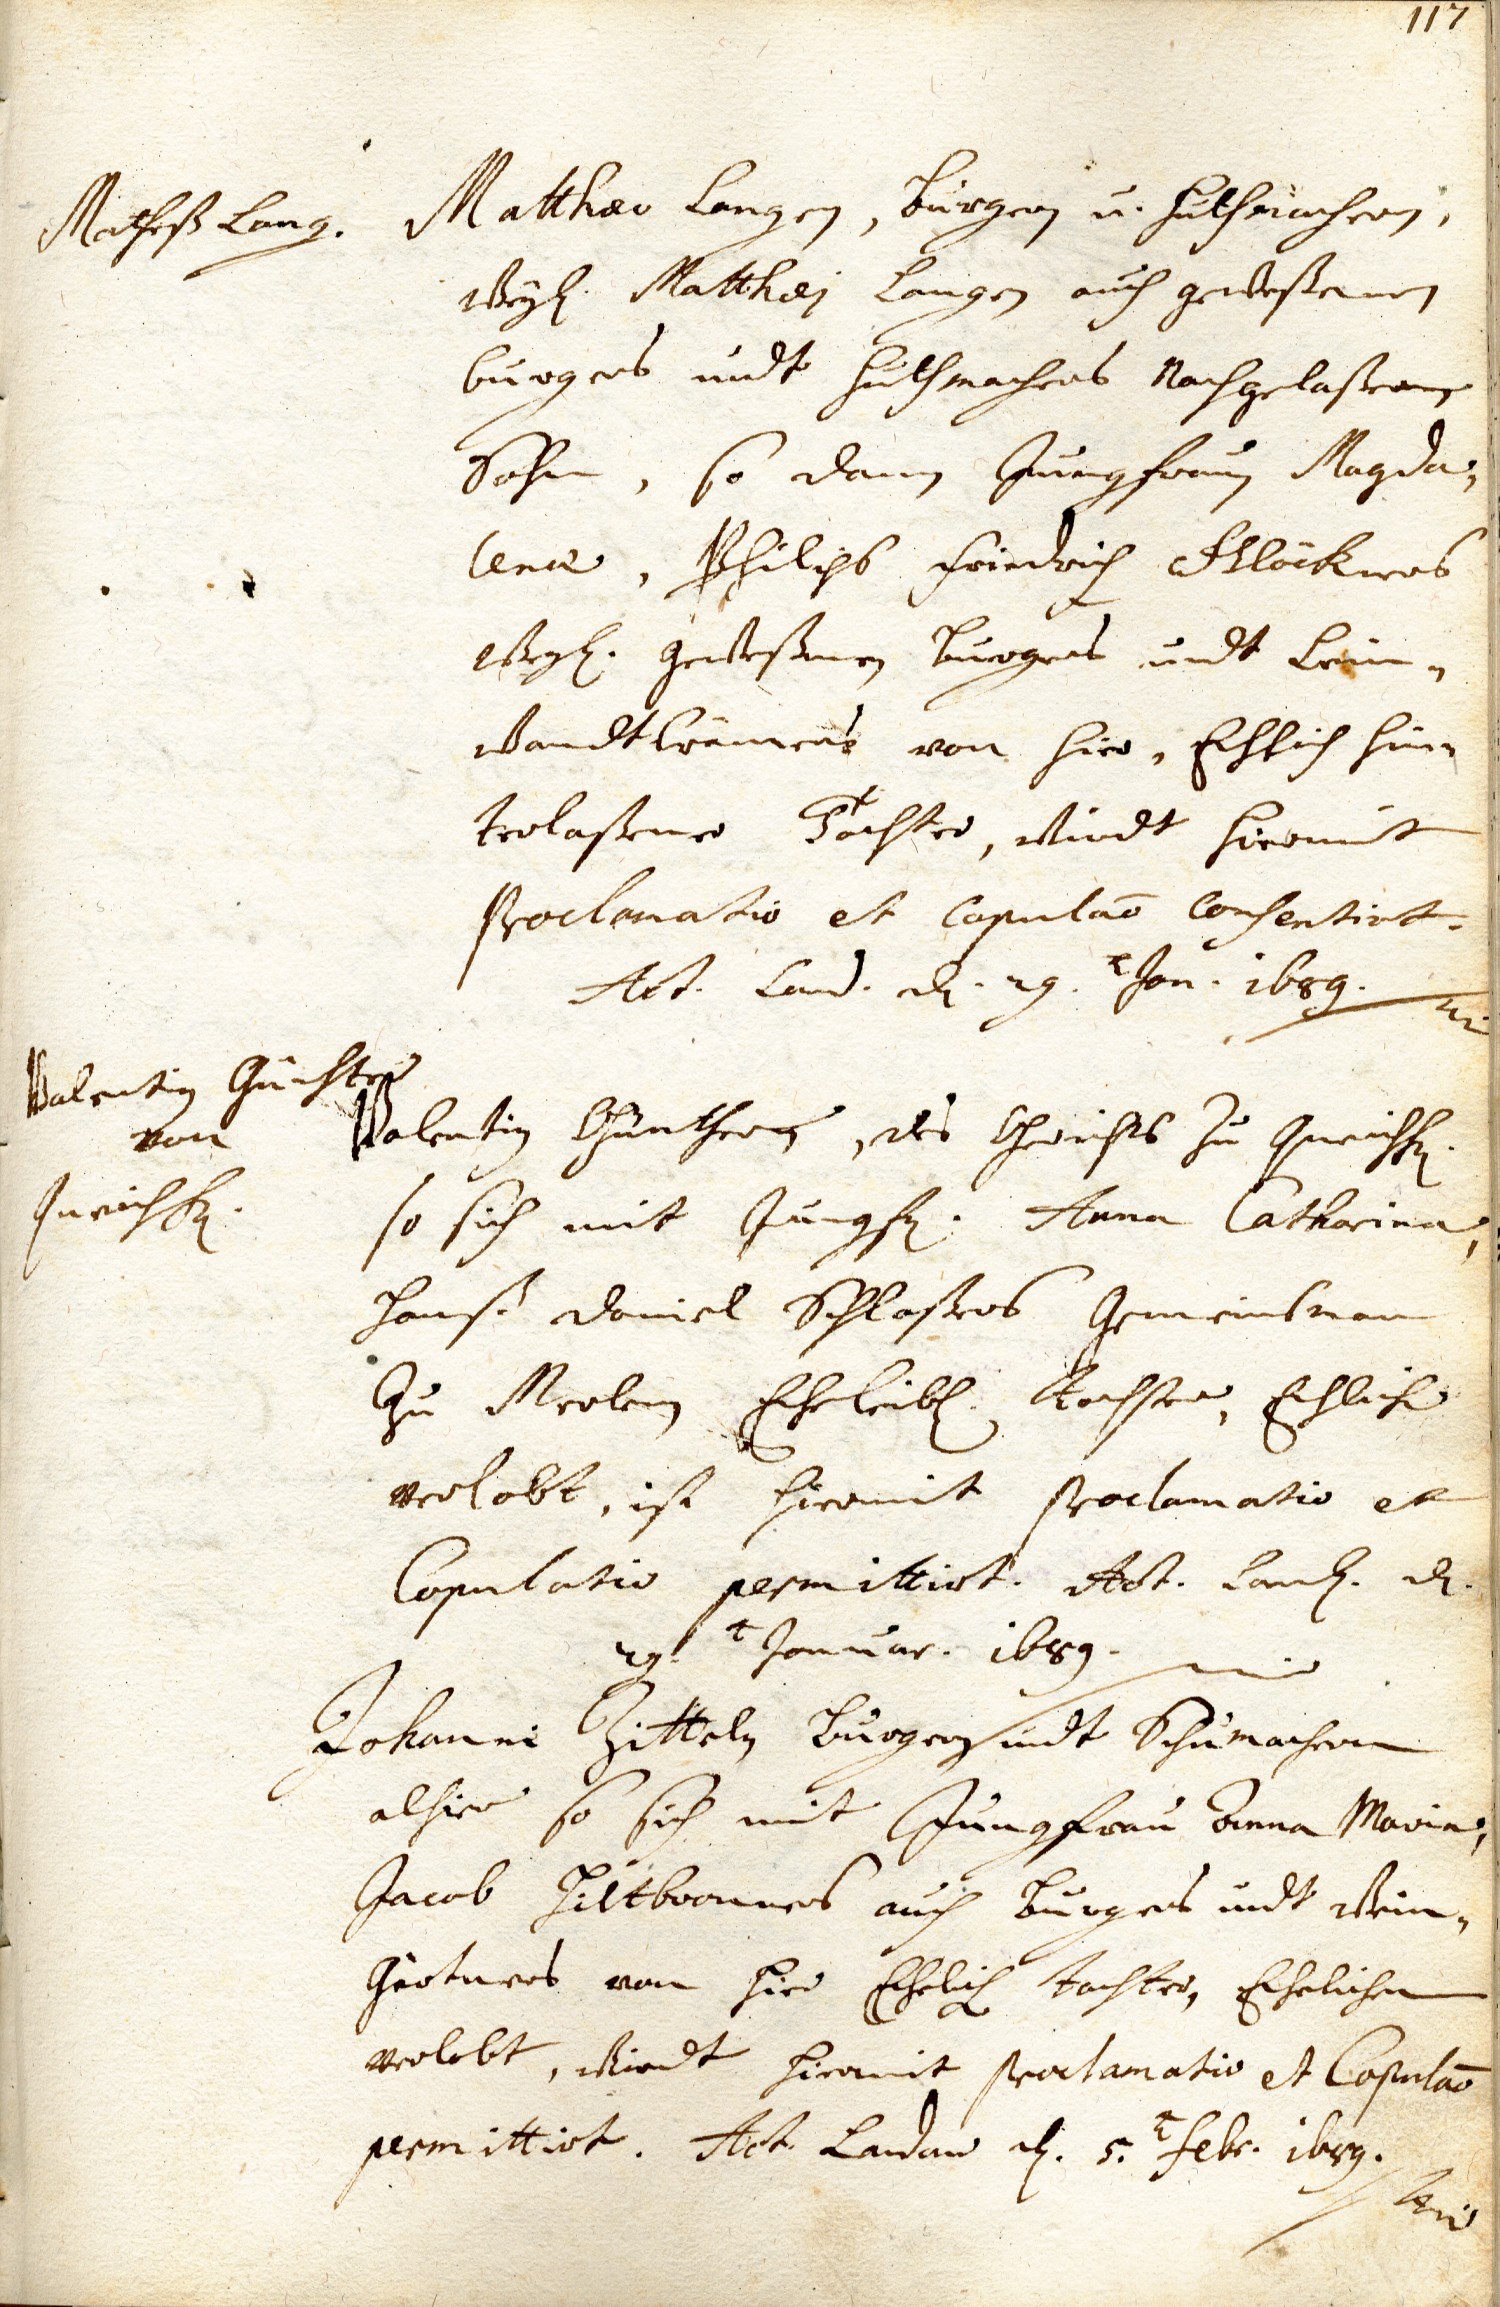 117
Matheß Lang.
Matthæo Langen, Burgern u. Huthmachern,
Weyl. Matthæj Langen auch geweßenen
burgers undt Huthmachers Nachgelaßenen
Sohn, so dann Jungfrauen Magda,
lenæ, Philips Friedrich Klöckners
Weyl. geweßenen Burgers undt Lein„
wandtkrämers von hier, Ehlich hin„
terlaßener Tochter, Wirdt hiermit
Proclamatio et Copulaõ Consentirt.
Act. Land. d. 29.t Jan. 1689.
Valentin Günther
von
Inrichh.
Valentin Günthern, des Gerichts zu Inrichh.
so sich mit Jungfr. Anna Catharina,
Hanß Daniel Schloßers Gemeinsman
Zu Merlen Eheleibl. Tochter, Ehlich
verlobt, ist hiermit Proclamatio et
Copulatio permittirt. Act. Land. d.
29.t Januar. 1689.
Johanni Zitteln Burgern undt Schumachern
alhier so sich mit Jungfrau Anna Maria,
Jacob Hiltbronners auch Burgers undt Wein„
gärtners von hier Ehelich tochter, Ehelichen
verlobt, Wirdt hiermit Proclamatio et Copulaõ
permittirt. Act. Landau d. 5.t Febr. 1689.